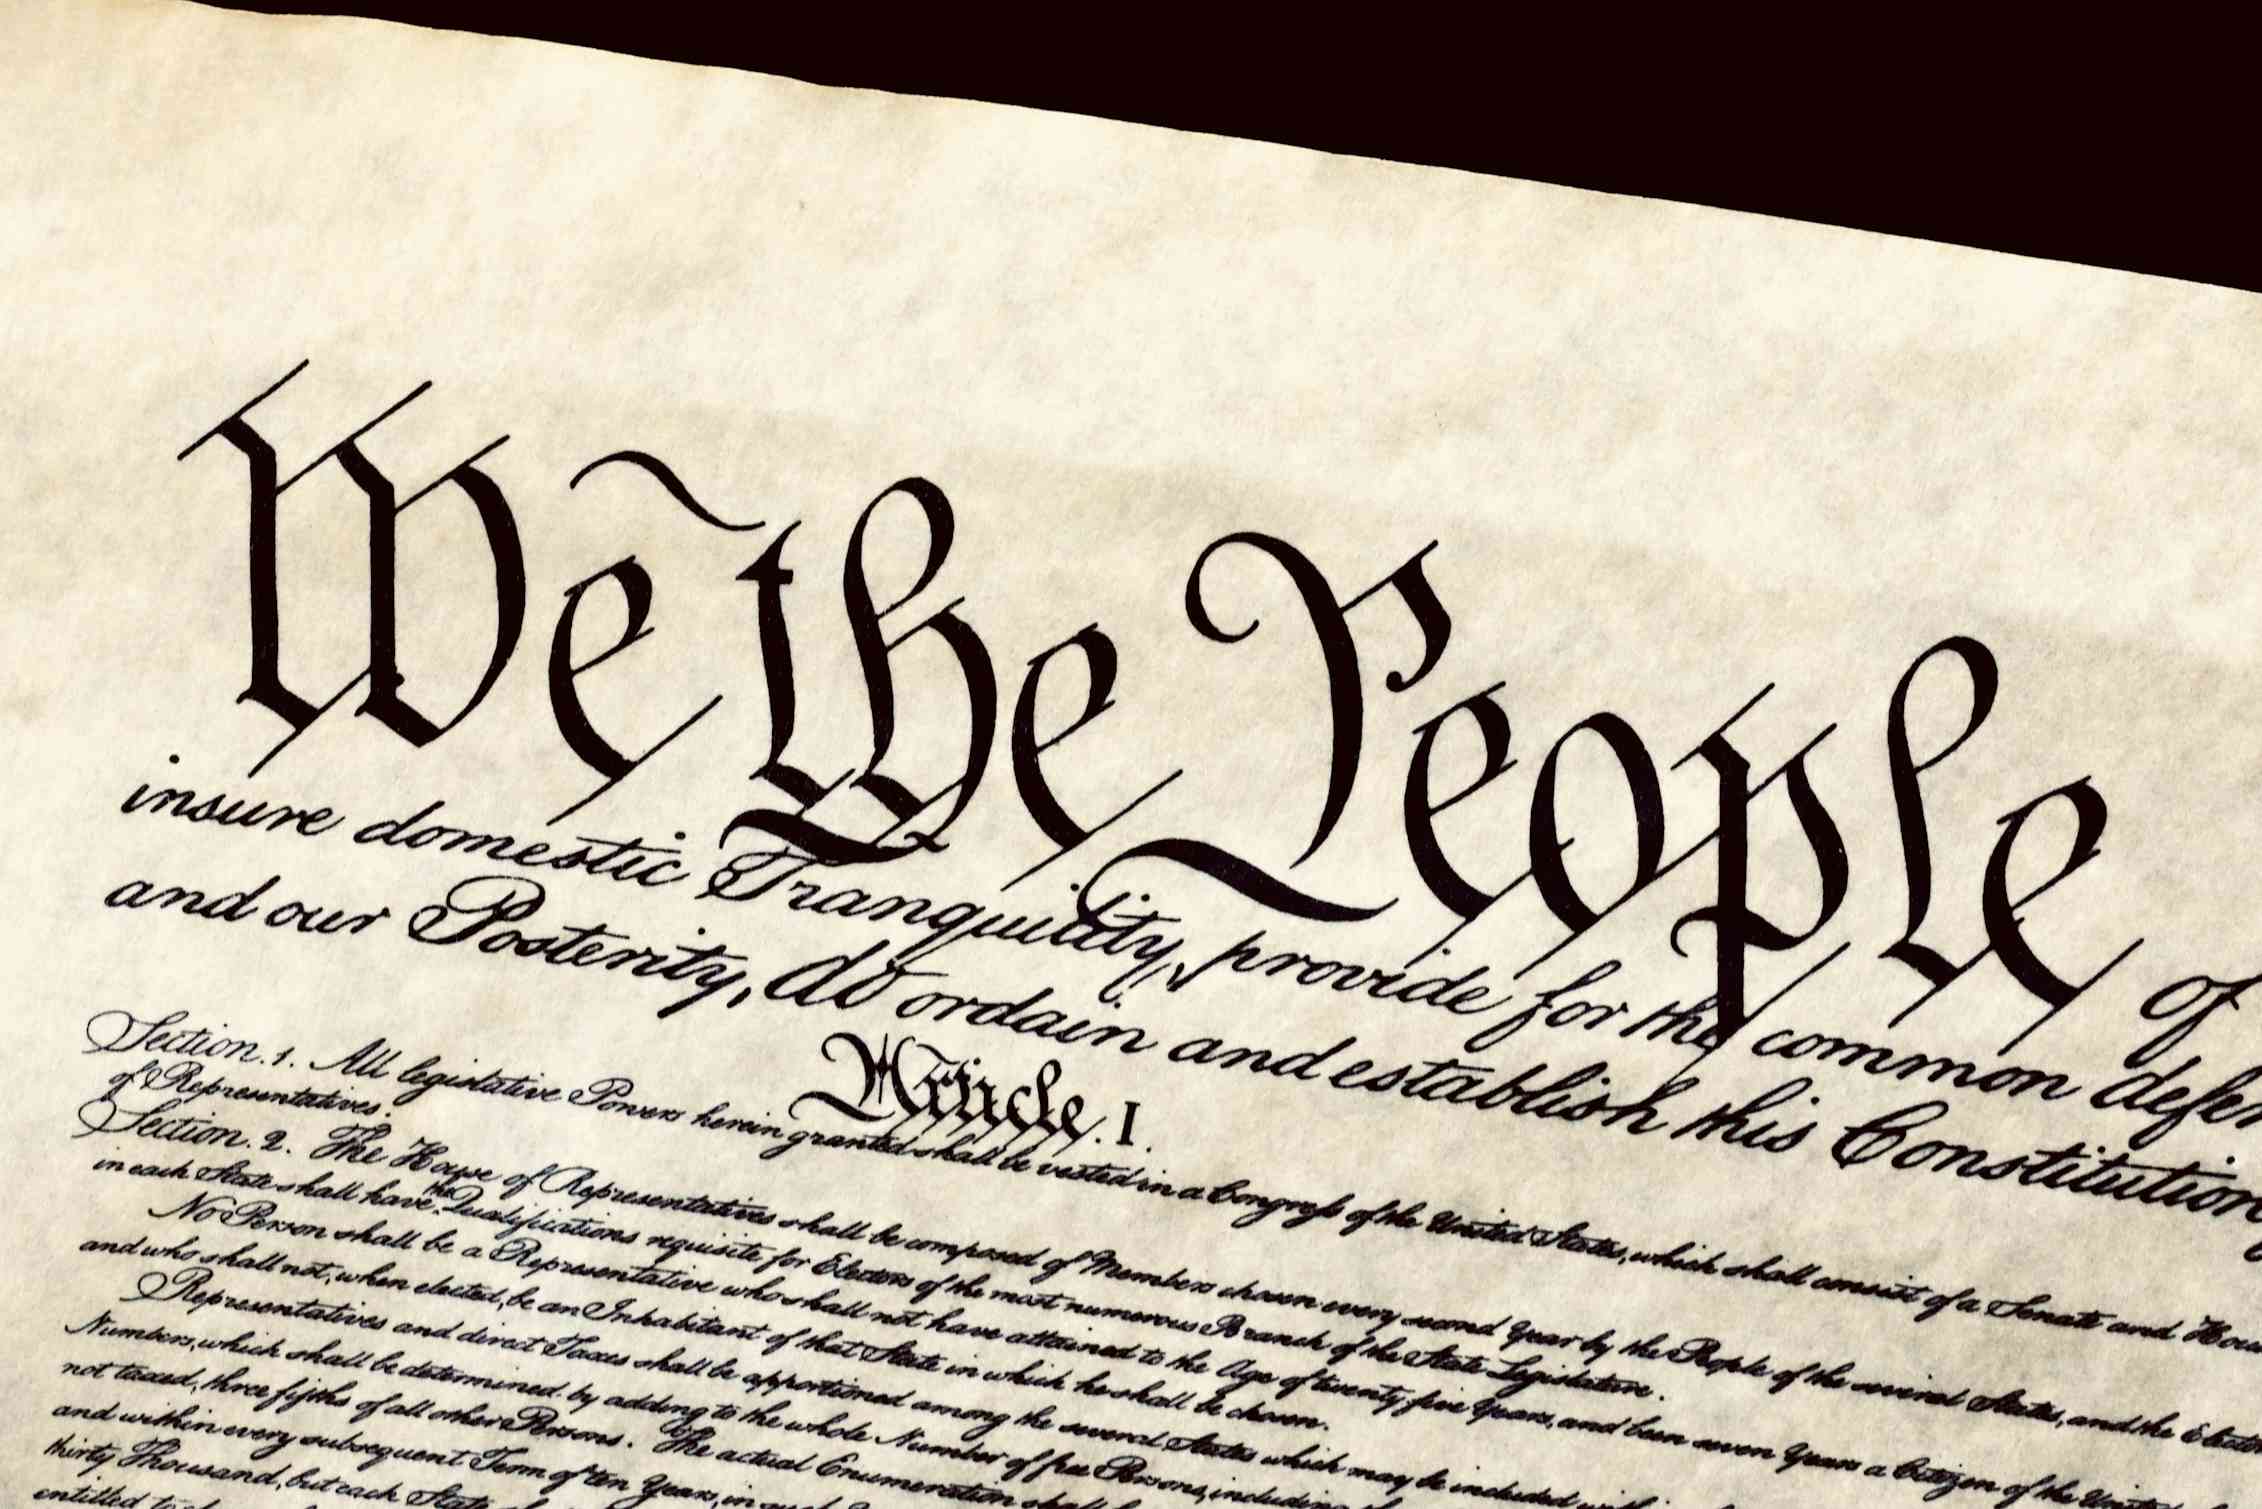 We the People of
insure domestic Tranquility, provide for the common defen
and our Posterity, do ordain and establish this Constitution
Article. I.
Section. 1. All legislative Powers herein granted shall be vested in a Congress of the United States, which shall consist of a Senate and Hous
of Representatives.
Section. 2. The House of Representatives shall be composed of Members chosen every second Year by the People of the several States, and the Elector
in each State shall have the Qualifications requisite for Electors of the most numerous Branch of the State Legislature.
No Person shall be a Representative who shall not have attained to the Age of twenty five Years, and been seven Years a Citizen of the United
and who shall not, when elected, be an Inhabitant of that State in which he shall be chosen.
Representatives and direct Taxes shall be apportioned among the several States which may be included with
Numbers, which shall be determined by adding to the whole Number of free Persons, including
not taxed, three fifths of all other Persons. The actual Enumeration shall
and within every subsequent Term of ten Years, in such
thirty Thousand, but each State
entitled to